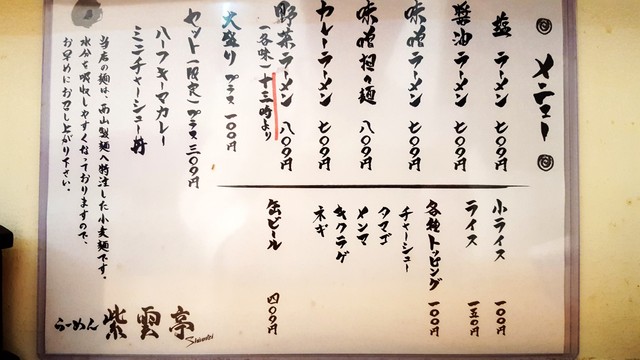 メニュー
塩ラーメン 七〇〇円
醤油ラーメン 七〇〇円
味噌ラーメン 七〇〇円
味噌担々麺 八〇〇円
カレーラーメン 七〇〇円
野菜ラーメン 八〇〇円
(各味)十三時より
大盛り プラス 一〇〇円
セット(限定)プラス三〇〇円
ハーフキーマカレー
ミニチャーシュー丼
当店の麺は、西山製麺へ特注した小麦麺です。
水分を吸収しやすくなっておりますので、
お早めにお召し上がり下さい。
小ライス 一〇〇円
ライス 一五〇円
各種トッピング 一〇〇円
チャーシュー
タマゴ
メンマ
キクラゲ
ネギ
缶ビール 四〇〇円
らーめん 紫雲亭